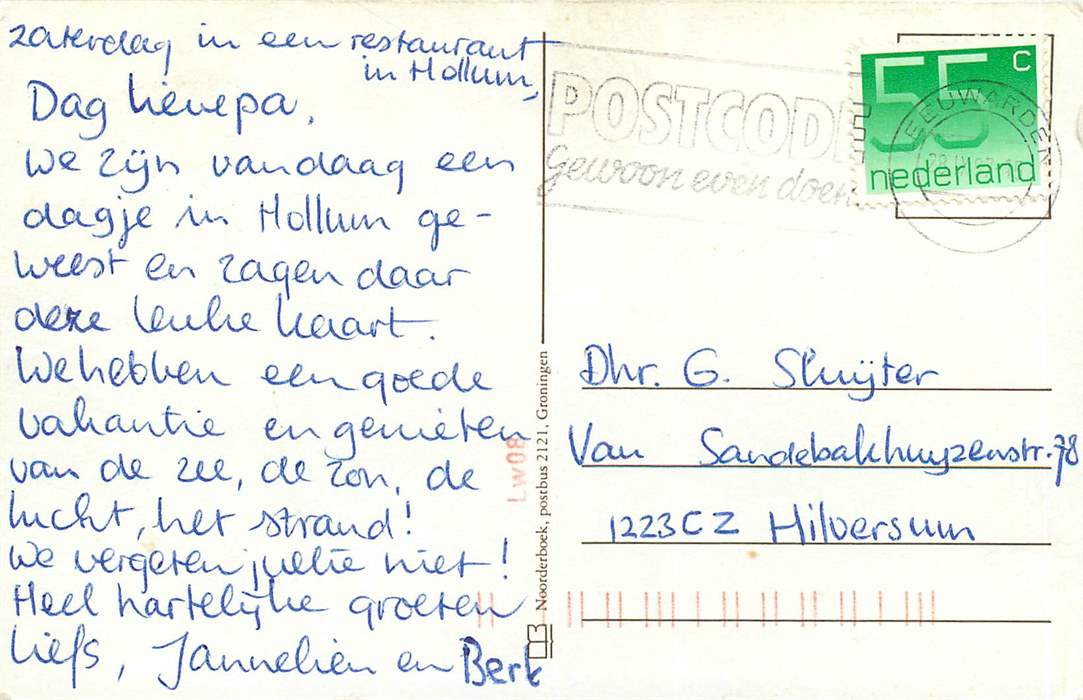 zaterdag in een restaurant
in Hollum,
Dag lievepa,
we zijn vandaag een
dagje in Hollum ge-
weest en zagen daar
deze leuke kaart.
We hebben een goede
vakantie en genieten
van de zee, de zon, de
lucht, het strand!
We vergeten jullie niet!
Heel hartelijke groeten
liefs, Jannelien en Berk
POSTCODE
Gewoon even doen
55 c
nederland
LEEUWARDEN
Noorderboek, postbus 2121, Groningen
LW08
Dhr. G. Sluijter
Van Sandebakhuyzenstr. 78
1223CZ Hilversum